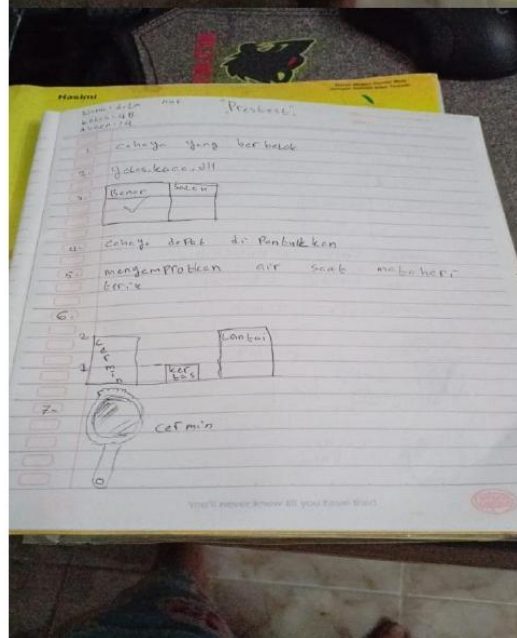 Hasimi
nur "Prestest".
kelas : 4B
Absen : 19
1. cahaya yang berbelok
2. gelas, kaca, dll
3. Benar Salah
✓
4. cahaya dapat di Pantulkkan
5. mengemprotkan air saat matahari
terik
6.
2 cermin Lantai
1 kertas
7. cermin
You'll never know till you have tried